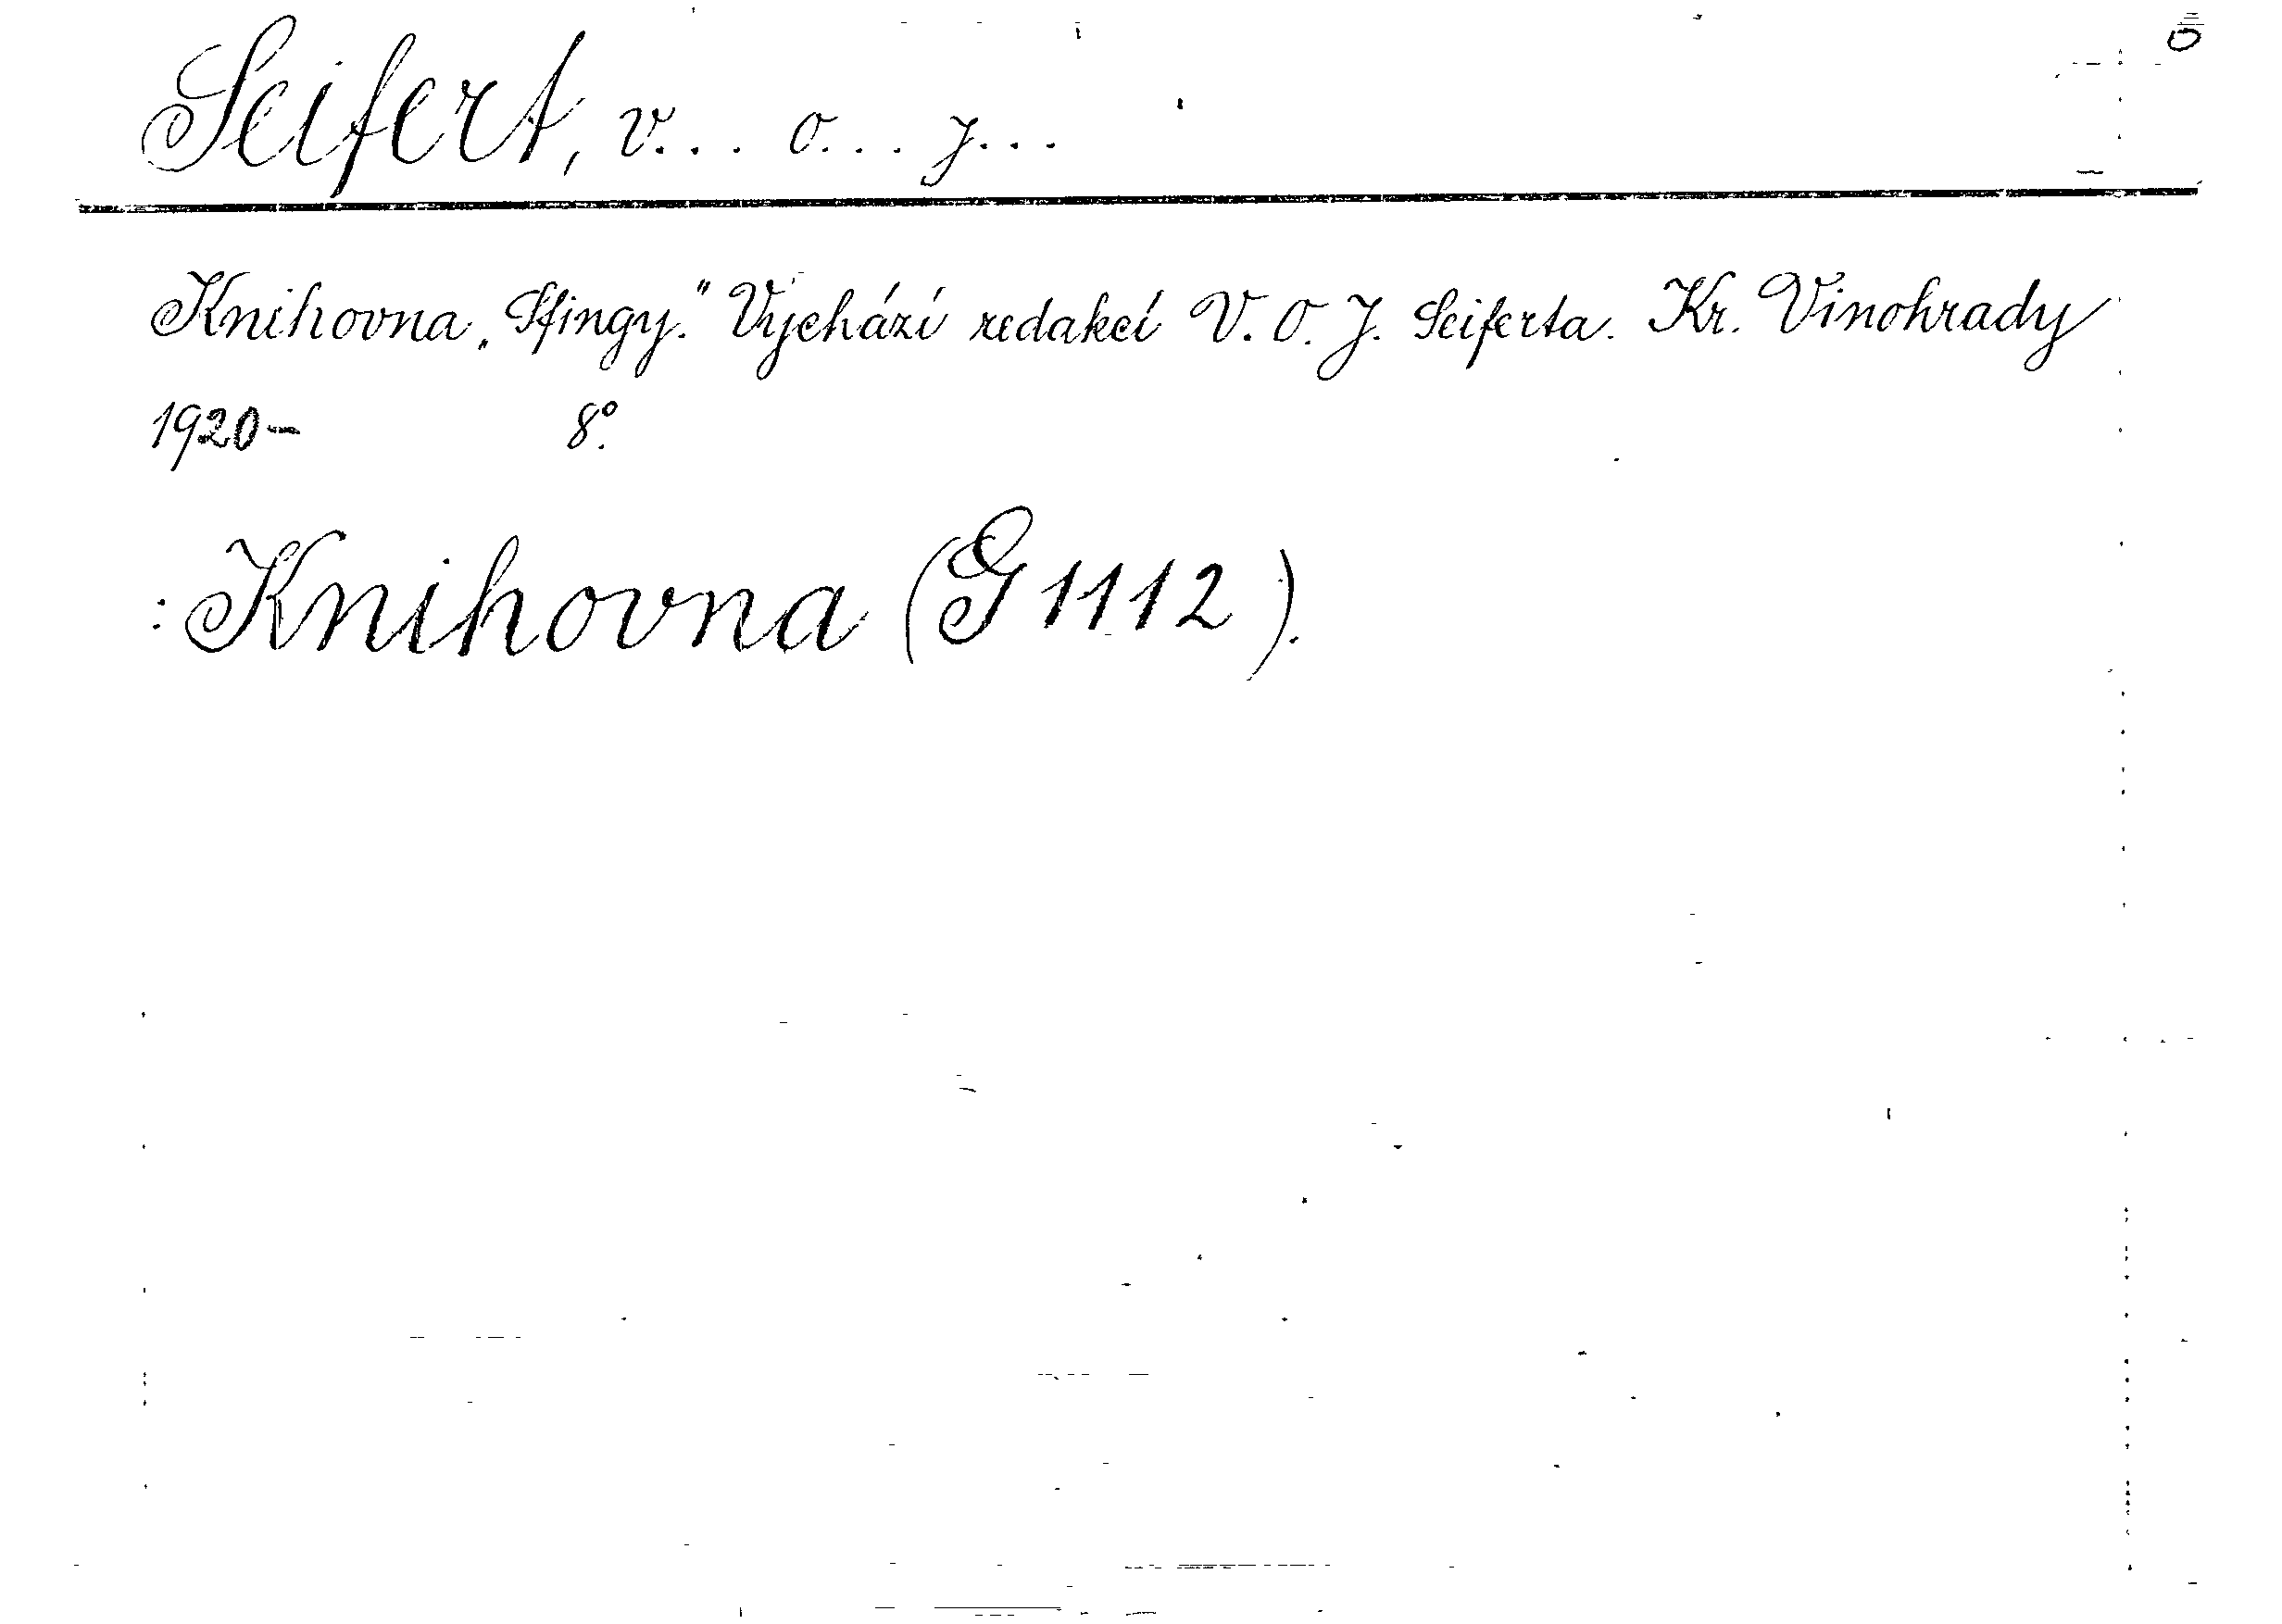 Seifert, v... o... j...
Knihovna „Sfingy.“ Vychází redakcí V. O. J. Seiferta. Kr. Vinohrady
1920– 8°.
: Knihovna (G 1112).